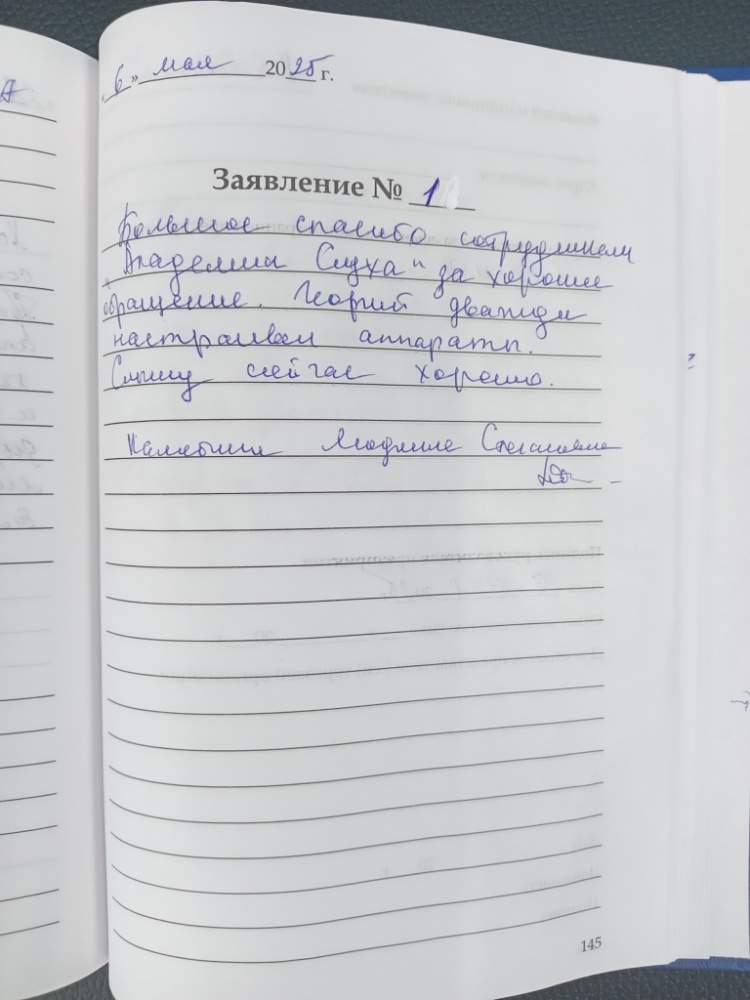 6 » мая 2025 г.
Заявление № 1
Большое спасибо сотрудникам
"Академии Слуха" за хорошее
обращение. Георгий дважды
настраивал аппараты.
Слышу сейчас хорошо.
Людмила Степановна
145